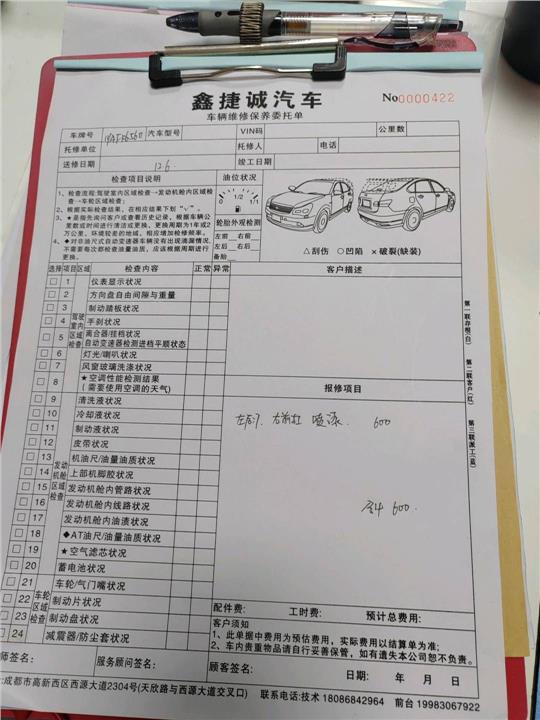 鑫捷诚汽车
No0000422
车辆维修保养委托单
车牌号 汽车型号 VIN码 公里数
托修单位 托修人 电话
送修日期 12.6 竣工日期
检查项目说明
1、检查流程:驾驶室内区域检查→发动机舱内区域检
查→车轮区域检查;
2、根据实际检查结果，在相应结果下划“√”。
3、★是指先询问客户或查看历史记录，根据车辆公
里数或时间进行清洁或更换、更换周期为1年或2
万公里、环境较差的地域，相应增加检修频率。
4、◆对非油尺式自动变速器车辆没有出现滴漏情况，
不需要每次都检查油量油质，应该根据周期进行
更换。
油位状况
0 1/2 1/1
轮胎外观检测
左前 右前
左后 右后
备胎
△刮伤 ○凹陷 ×破裂(缺装)
选择 项目 区域 检查内容 正常 异常
驾驶室内区域检查
1 仪表显示状况
2 方向盘自由间隙与重量
3 制动踏板状况
4 手刹状况
5 离合器/挂档状况
自动变速器检测进档平顺状态
6 灯光/喇叭状况
7 风窗玻璃洗涤状况
8 ★空调性能检测结果
(需要使用空调的天气)
发动机舱区域检查
9 清洗液状况
10 冷却液状况
11 制动液状况
12 皮带状况
13 机油尺/油量油质状况
14 上部机脚胶状况
15 发动机舱内管路状况
16 发动机舱内线路状况
17 发动机舱内油渍状况
18 ◆AT油尺/油量油质状况
19 ★空气滤芯状况
20 蓄电池状况
车轮区域检查
21 车轮/气门嘴状况
22 制动片状况
23 制动盘状况
24 减震器/防尘套状况
客户描述
报修项目
喷漆 600
600.
第一联存根(白)
第二联客户(红)
第三联派工(蓝)
配件费: 工时费: 预计总费用:
客户须知
1、此单据中费用为预估费用，实际费用以结算单为准;
2、车内贵重物品请自行妥善保管，如有遗失本公司恕不负责。
师签名: 服务顾问签名: 顾客签名: 日期: 年 月 日
:成都市高新西区西源大道2304号(天欣路与西源大道交叉口) 联系电话:技术 18086842964 前台 19983067922